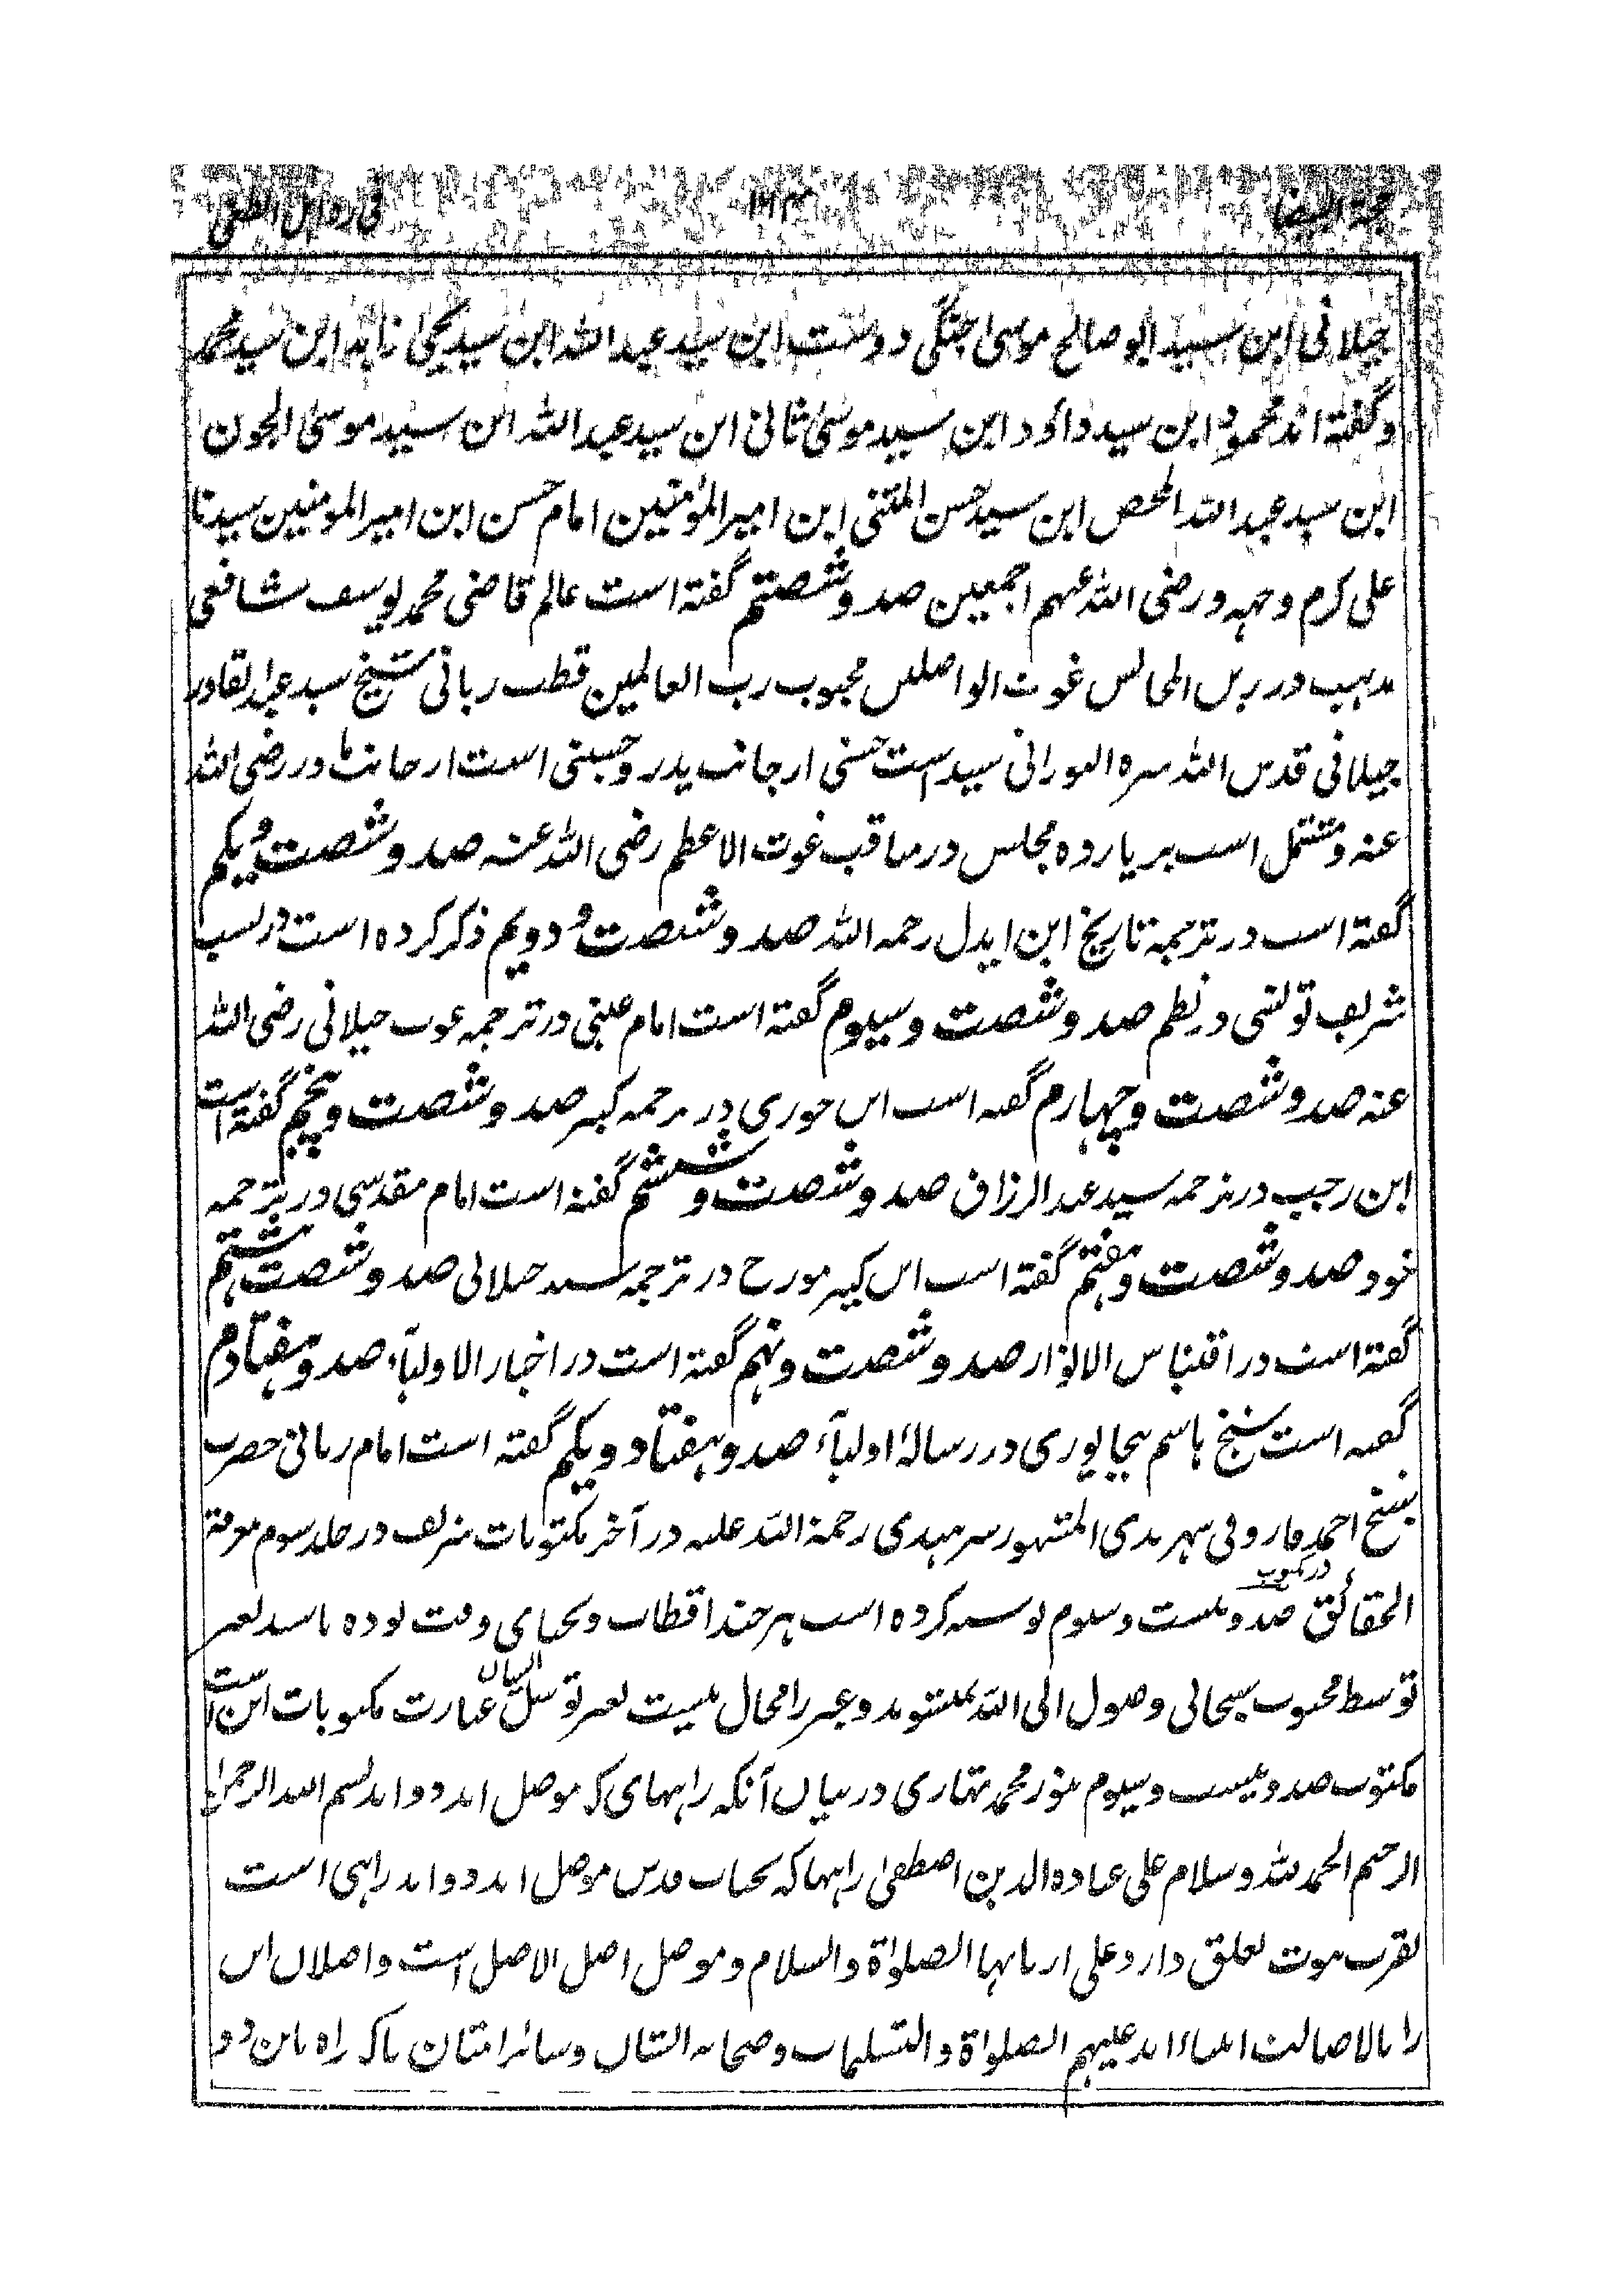 حجة البیضا ۱۱۳ فی رد اہل الطغی
جیلانی ابن سید ابو صالح موسی جنگی دوست ابن سید عبد اللہ ابن سید یحیی زاہد ابن سید محمد
و گفتہ اند محمود ابن سید داؤد ابن سید موسیٰ ثانی ابن سید عبد اللہ ابن سید موسیٰ الجون
ابن سید عبد اللہ المحض ابن سید حسن المثنی ابن امیر المؤمنین امام حسن ابن امیر المومنین سیدنا
علی کرم وجہہ و رضی اللہ عنہم اجمعین صد و شصتم گفتہ است عالم قاضی محمد یوسف شافعی
مذہب در زین المجالس غوث الواصلین محبوب رب العالمین قطب ربانی شیخ سید عبد القادر
جیلانی قدس اللہ سرہ النورانی سید است حسنی از جانب پدر و حسینی است از جانب مادر رضی اللہ
عنہ و مشتمل است بر یازدہ مجلس در مناقب غوث الاعظم رضی اللہ عنہ صد و شصت و یکم
گفتہ است در ترجمۂ تاریخ ابن ایدل رحمہ اللہ صد و شصت و دویم ذکر کردہ است در نسب
شریف تولنسی در نظم صد و شصت و سیوم گفتہ است امام عینی در ترجمہ غوث جیلانی رضی اللہ
عنہ صد و شصت و چہارم گفتہ است ابن جوزی در ترجمہ کبیر صد و شصت و پنجم گفتہ است
ابن رجب در ترجمہ سید عبد الرزاق صد و شصت و ششم گفتہ است امام مقدسی در ترجمہ
خود صد و شصت و ہفتم گفتہ است ابن کثیر مورخ در ترجمہ سید جیلانی صد و شصت ہشتم
گفتہ است در اقتباس الانوار صد و شصت و نہم گفتہ است در اخبار الاولیآء صد و ہفتادم
گفتہ است شیخ ہاشم بیجاپوری در رسالۂ اولیآء صد و ہفتاد و یکم گفتہ است امام ربانی حضرت
شیخ احمد فاروقی سہرندی المشہور سرہندی رحمة اللہ علیہ در آخر مکتوبات شریف در جلد سوم معرفة
الحقائق در مکتوب صد و بیست و سیوم نوشتہ کردہ است ہر چند اقطاب و نجبای وقت بودہ باشد بغیر
توسط محبوب سبحانی وصول الی اللہ نمیشوند و غیر را مجال نیست بغیر توسل الیشان عبارت مکتوبات این است
مکتوب صد و بیست و سیوم بنور محمد تہاری در بیان آنکہ راہہای کہ موصل اند دو اند بسم اللہ الرحمن
الرحیم الحمد للہ و سلام علی عبادہ الذین اصطفیٰ راہہا کہ بجناب قدس موصل اند دو اند راہی است
بقرب نبوت تعلق دارد علی اربابہا الصلوٰة والسلام و موصل اصل الاصل است واصلان این
را بالاصالت انبیاء اند علیہم الصلوٰة والتسلیمات و صحابہ الشان و سائر امتان تا کہ راہ باین دو